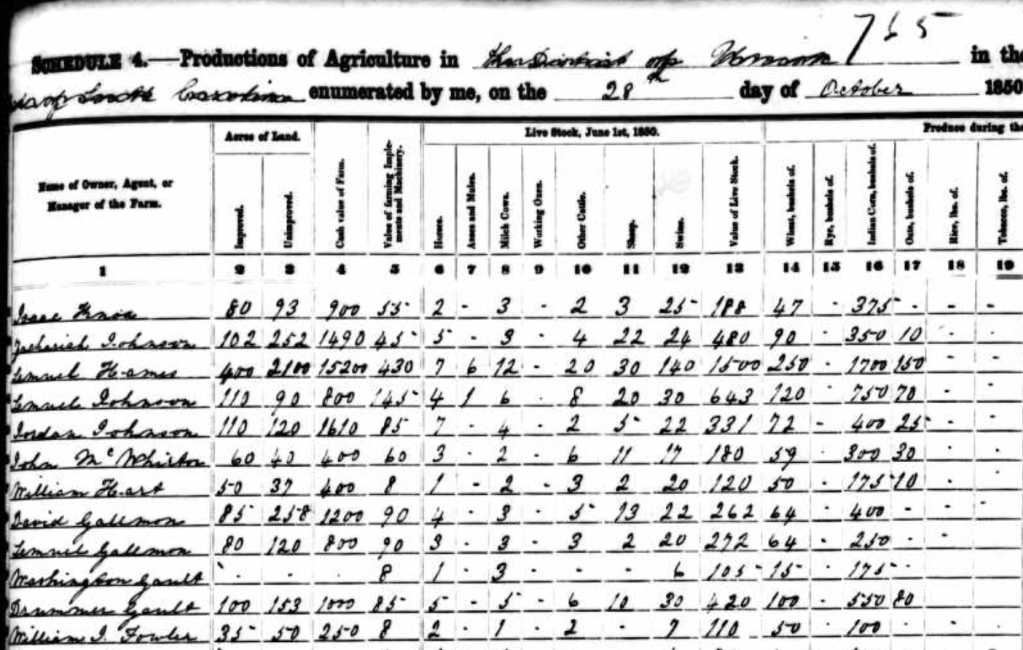 765
SCHEDULE 4.—Productions of Agriculture in the District of Union in the
of South Carolina enumerated by me, on the 28th day of October 1850
Acres of Land. Live Stock, June 1st, 1850. Produce during the
Name of Owner, Agent, or Manager of the Farm. Improved. Unimproved. Cash value of Farm. Value of farming Implements and Machinery. Horses. Asses and Mules. Milch Cows. Working Oxen. Other Cattle. Sheep. Swine. Value of Live Stock. Wheat, bushels of. Rye, bushels of. Indian Corn, bushels of. Oats, bushels of. Rice, lbs. of. Tobacco, lbs. of.
1 2 3 4 5 6 7 8 9 10 11 12 13 14 15 16 17 18 19
Isaac 80 93 900 55 2 - 3 - 2 3 25 188 47 - 375 - - -
Zachariah Johnson 102 252 1490 45 5 - 3 - 4 22 24 480 90 - 350 10 - -
Lemuel Hames 400 2100 15200 430 7 6 12 - 20 30 140 1500 250 - 1700 150 - -
Lemuel Johnson 110 90 800 145 4 1 6 - 8 20 30 643 120 - 750 70 - -
Jordan Johnson 110 120 1610 85 7 - 4 - 2 5 22 331 72 - 400 25 - -
John McWhirton 60 40 400 60 3 - 2 - 6 11 17 180 59 - 300 30 - -
William Hart 50 37 400 8 1 - 2 - 3 2 20 120 50 - 175 10 - -
David Gallmon 85 258 1200 90 4 - 3 - 5 13 22 262 64 - 400 - - -
Lemuel Gallmon 80 120 800 90 3 - 3 - 3 2 20 272 64 - 250 - - -
Washington Gault - - - 8 1 - 3 - - - 6 105 15 - 175 - - -
Drummer Gault 100 153 1000 85 5 - 5 - 6 10 30 420 100 - 550 80 - -
William J. Fowler 35 50 250 8 2 - 1 - 2 - 7 110 50 - 100 - - -